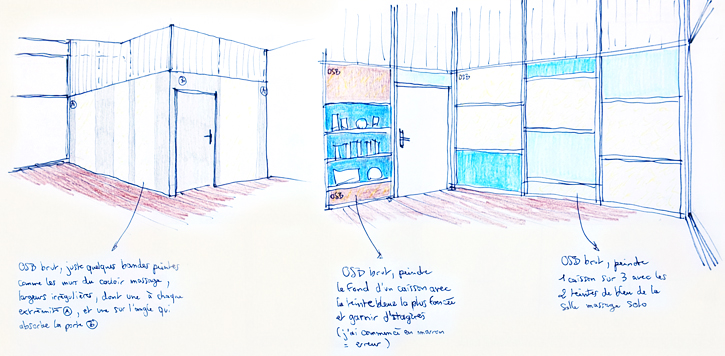 A
b
b
OSB brut, juste quelques bandes peintes
comme les murs du couloir massage,
largeurs irrégulières, dont une à chaque
extrémité A, et une sur l'angle qui
absorbe la porte b
OSB
OSB
OSB brut, peindre
le fond d'un caisson avec
la teinte bleue la plus foncée
et garnir d'étagères
(j'ai commencé en marron
= erreur)
OSB
OSB brut, peindre
1 caisson sur 3 avec les
2 teintes de bleu de la
salle massage solo